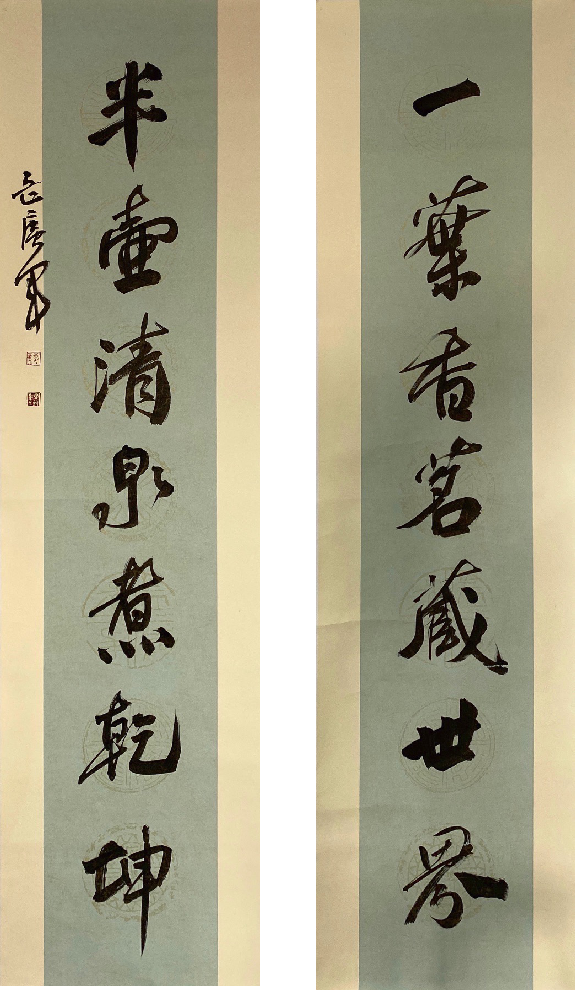 一葉香茗藏世界
半壺清泉煮乾坤